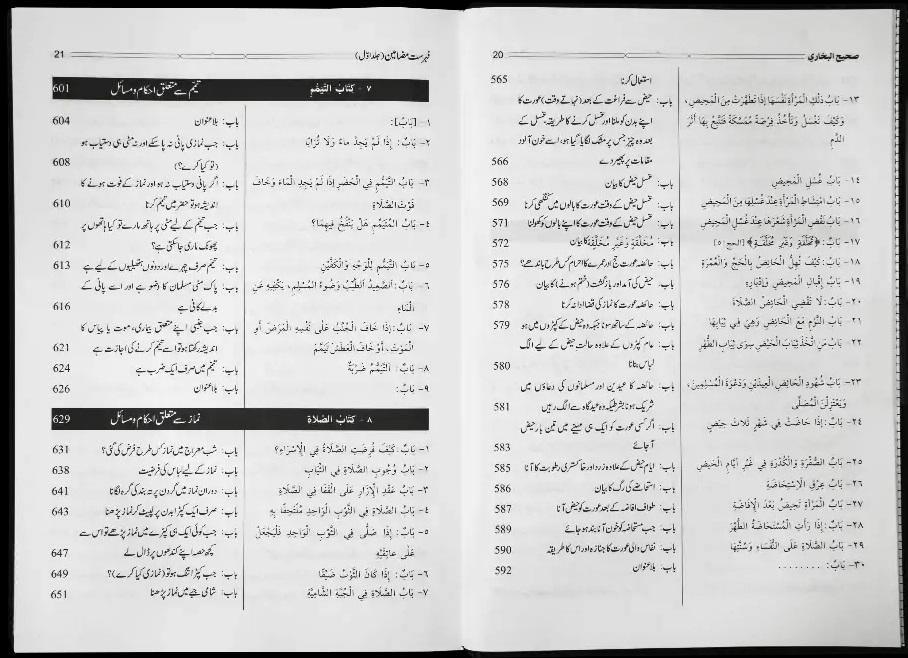 صحیح البخاري 20
استعمال کرنا 565
۱۳- بَابُ دَلْكِ الْمَرْأَةِ نَفْسَهَا إِذَا تَطَهَّرَتْ مِنَ الْمَحِيضِ، باب: حیض سے فراغت کے بعد (نہاتے وقت) عورت کا
وَكَيْفَ تَغْتَسِلُ وَتَأْخُذُ فِرْصَةً مُمَسَّكَةً فَتَتَّبِعُ بِهَا أَثَرَ اپنے بدن کو ملنا اور غسل کرنے کا طریقہ، غسل کے
الدَّمِ بعد وہ چیز جس پر مشک لگایا گیا ہو، اسے خون آلود
مقامات پر پھیر دے 566
۱٤- بَابُ غُسْلِ الْمَحِيضِ باب: غسل حیض کا بیان 568
۱٥- بَابُ امْتِشَاطِ الْمَرْأَةِ عِنْدَ غُسْلِهَا مِنَ الْمَحِيضِ باب: غسل حیض کے وقت عورت کا بالوں میں کنگھی کرنا 569
۱٦- بَابُ نَقْضِ الْمَرْأَةِ شَعْرَهَا عِنْدَ غُسْلِ الْمَحِيضِ باب: غسل حیض کے وقت عورت کا اپنے بالوں کو کھولنا 571
۱۷- بَابٌ: ﴿مُخَلَّقَةٍ وَغَيْرِ مُخَلَّقَةٍ﴾ [الحج:٥] باب: مُخَلَّقَةٍ وَغَيْرِ مُخَلَّقَةٍ کا بیان 572
۱۸- بَابٌ: كَيْفَ تُهِلُّ الْحَائِضُ بِالْحَجِّ وَالْعُمْرَةِ باب: حائضہ عورت حج اور عمرے کا احرام کس طرح باندھے؟ 575
۱۹- بَابُ إِقْبَالِ الْمَحِيضِ وَإِدْبَارِهِ باب: حیض کی آمد اور بازگشت (ختم ہونے) کا بیان 576
۲۰- بَابٌ: لَا تَقْضِي الْحَائِضُ الصَّلَاةَ باب: حائضہ عورت کا نماز کی قضا ادا نہ کرنا 578
۲۱- بَابُ النَّوْمِ مَعَ الْحَائِضِ وَهِيَ فِي ثِيَابِهَا باب: حائضہ کے ساتھ سونا جبکہ وہ حیض کے کپڑوں میں ہو 579
۲۲- بَابُ مَنِ اتَّخَذَ ثِيَابَ الْحَيْضِ سِوَى ثِيَابِ الطُّهْرِ باب: عام کپڑوں کے علاوہ حالت حیض کے لیے الگ
لباس بنانا 580
۲۳- بَابُ شُهُودِ الْحَائِضِ الْعِيدَيْنِ وَدَعْوَةَ الْمُسْلِمِينَ، باب: حائضہ کا عیدین اور مسلمانوں کی دعاؤں میں
وَيَعْتَزِلْنَ الْمُصَلَّى شریک ہونا بشرطیکہ وہ عیدگاہ سے الگ رہیں 581
۲٤- بَابٌ: إِذَا حَاضَتْ فِي شَهْرٍ ثَلَاثَ حِيَضٍ باب: اگر کسی عورت کو ایک ہی مہینے میں تین بار حیض
آجائے 583
۲٥- بَابُ الصُّفْرَةِ وَالْكُدْرَةِ فِي غَيْرِ أَيَّامِ الْحَيْضِ باب: ایام حیض کے علاوہ زرد اور خاکستری رطوبت کا آنا 585
۲٦- بَابُ عِرْقِ الِاسْتِحَاضَةِ باب: استحاضے کی رگ کا بیان 586
۲۷- بَابُ الْمَرْأَةِ تَحِيضُ بَعْدَ الْإِفَاضَةِ باب: طواف افاضہ کے بعد عورت کو حیض آنا 587
۲۸- بَابٌ: إِذَا رَأَتِ الْمُسْتَحَاضَةُ الطُّهْرَ باب: جب مستحاضہ کو خون آنا بند ہو جائے 589
۲۹- بَابُ الصَّلَاةِ عَلَى النُّفَسَاءِ وَسُنَّتِهَا باب: نفاس والی عورت کا جنازہ اور اس کا طریقہ 590
۳۰- بَابٌ: ........ باب: بلا عنوان 592
فہرست مضامین (جلد اوّل) 21
۷ - كتاب التيمم تیمّم سے متعلق احکام و مسائل 601
۱- [بَابٌ]: باب: بلا عنوان 604
۲- بَابٌ: إِذَا لَمْ يَجِدْ مَاءً وَلَا تُرَابًا باب: جب نمازی پانی نہ پا سکے اور نہ مٹی ہی دستیاب ہو
(تو کیا کرے؟) 608
۳- بَابُ التَّيَمُّمِ فِي الْحَضَرِ إِذَا لَمْ يَجِدِ الْمَاءَ وَخَافَ باب: اگر پانی دستیاب نہ ہو اور نماز کے فوت ہونے کا
فَوْتَ الصَّلَاةِ اندیشہ ہو تو حضر میں تیمم کرنا 610
٤- بَابُ الْمُتَيَمِّمِ هَلْ يَنْفُخُ فِيهِمَا؟ باب: جب تیمم کے لیے مٹی پر ہاتھ مارے تو کیا ہاتھوں پر
پھونک ماری جاسکتی ہے؟ 612
٥- بَابُ التَّيَمُّمِ لِلْوَجْهِ وَالْكَفَّيْنِ باب: تیمم صرف چہرے اور دونوں ہتھیلیوں کے لیے ہے 613
٦- بَابٌ: اَلصَّعِيدُ الطَّيِّبُ وَضُوءُ الْمُسْلِمِ، يَكْفِيهِ عَنِ باب: پاک مٹی مسلمان کا وضو ہے اور اسے پانی کے
الْمَاءِ بدلے کافی ہے 616
۷- بَابٌ: إِذَا خَافَ الْجُنُبُ عَلَى نَفْسِهِ الْمَرَضَ أَوِ باب: جب جنبی اپنے متعلق بیماری، موت یا پیاس کا
الْمَوْتَ، أَوْ خَافَ الْعَطَشَ تَيَمَّمَ اندیشہ رکھتا ہو تو اسے تیمم کرنے کی اجازت ہے 621
۸- بَابٌ: اَلتَّيَمُّمُ ضَرْبَةٌ باب: تیمم میں صرف ایک ضرب ہے 624
۹- بَابٌ: باب: بلا عنوان 626
۸ - كتاب الصلاة نماز سے متعلق احکام و مسائل 629
۱- بَابٌ: كَيْفَ فُرِضَتِ الصَّلَاةُ فِي الْإِسْرَاءِ؟ باب: شب معراج میں نماز کس طرح فرض کی گئی؟ 631
۲- بَابُ وُجُوبِ الصَّلَاةِ فِي الثِّيَابِ باب: نماز کے لیے لباس کی فرضیت 638
۳- بَابُ عَقْدِ الْإِزَارِ عَلَى الْقَفَا فِي الصَّلَاةِ باب: دوران نماز میں گردن پر تہ بند کی گرہ لگانا 641
٤- بَابُ الصَّلَاةِ فِي الثَّوْبِ الْوَاحِدِ مُلْتَحِفًا بِهِ باب: صرف ایک کپڑا بدن پر لپیٹ کر نماز پڑھنا 643
٥- بَابٌ: إِذَا صَلَّى فِي الثَّوْبِ الْوَاحِدِ فَلْيَجْعَلْ باب: جب کوئی ایک ہی کپڑے میں نماز پڑھے تو اس سے
عَلَى عَاتِقَيْهِ کچھ حصہ اپنے کندھوں پر ڈال لے 647
٦- بَابٌ: إِذَا كَانَ الثَّوْبُ ضَيِّقًا باب: جب کپڑا تنگ ہو تو (نمازی کیا کرے)؟ 649
۷- بَابُ الصَّلَاةِ فِي الْجُبَّةِ الشَّامِيَّةِ باب: شامی جبے میں نماز پڑھنا 651